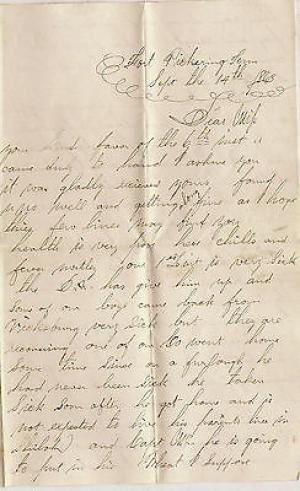 Fort Pickering Tenn
Sept the 14th 1863
Dear Wife
you kind favor of the 6th inst
came duly to hand I ashure you
it was gladly recieved yours found
up us well and getting fine as I hope
they few lines may find you
health is very poor heer chills and
fever my 1st Sergt is very Sick
the D.R. has give him up and
Som of our boys came back from
Vicksburg very Sick but they are
recovering one of our Co went home
Some time Since on a furlough he
had never been Sick he taken
Sick Soon after he got home and is
not expected to live his parents lives in
Shiloh) and Capt he is going
to put in his Wheat I Suppose